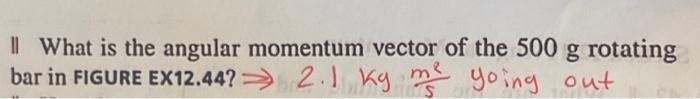 || What is the angular momentum vector of the 500 g rotating
bar in FIGURE EX12.44? ⇒ 2.1 kg m²/s going out